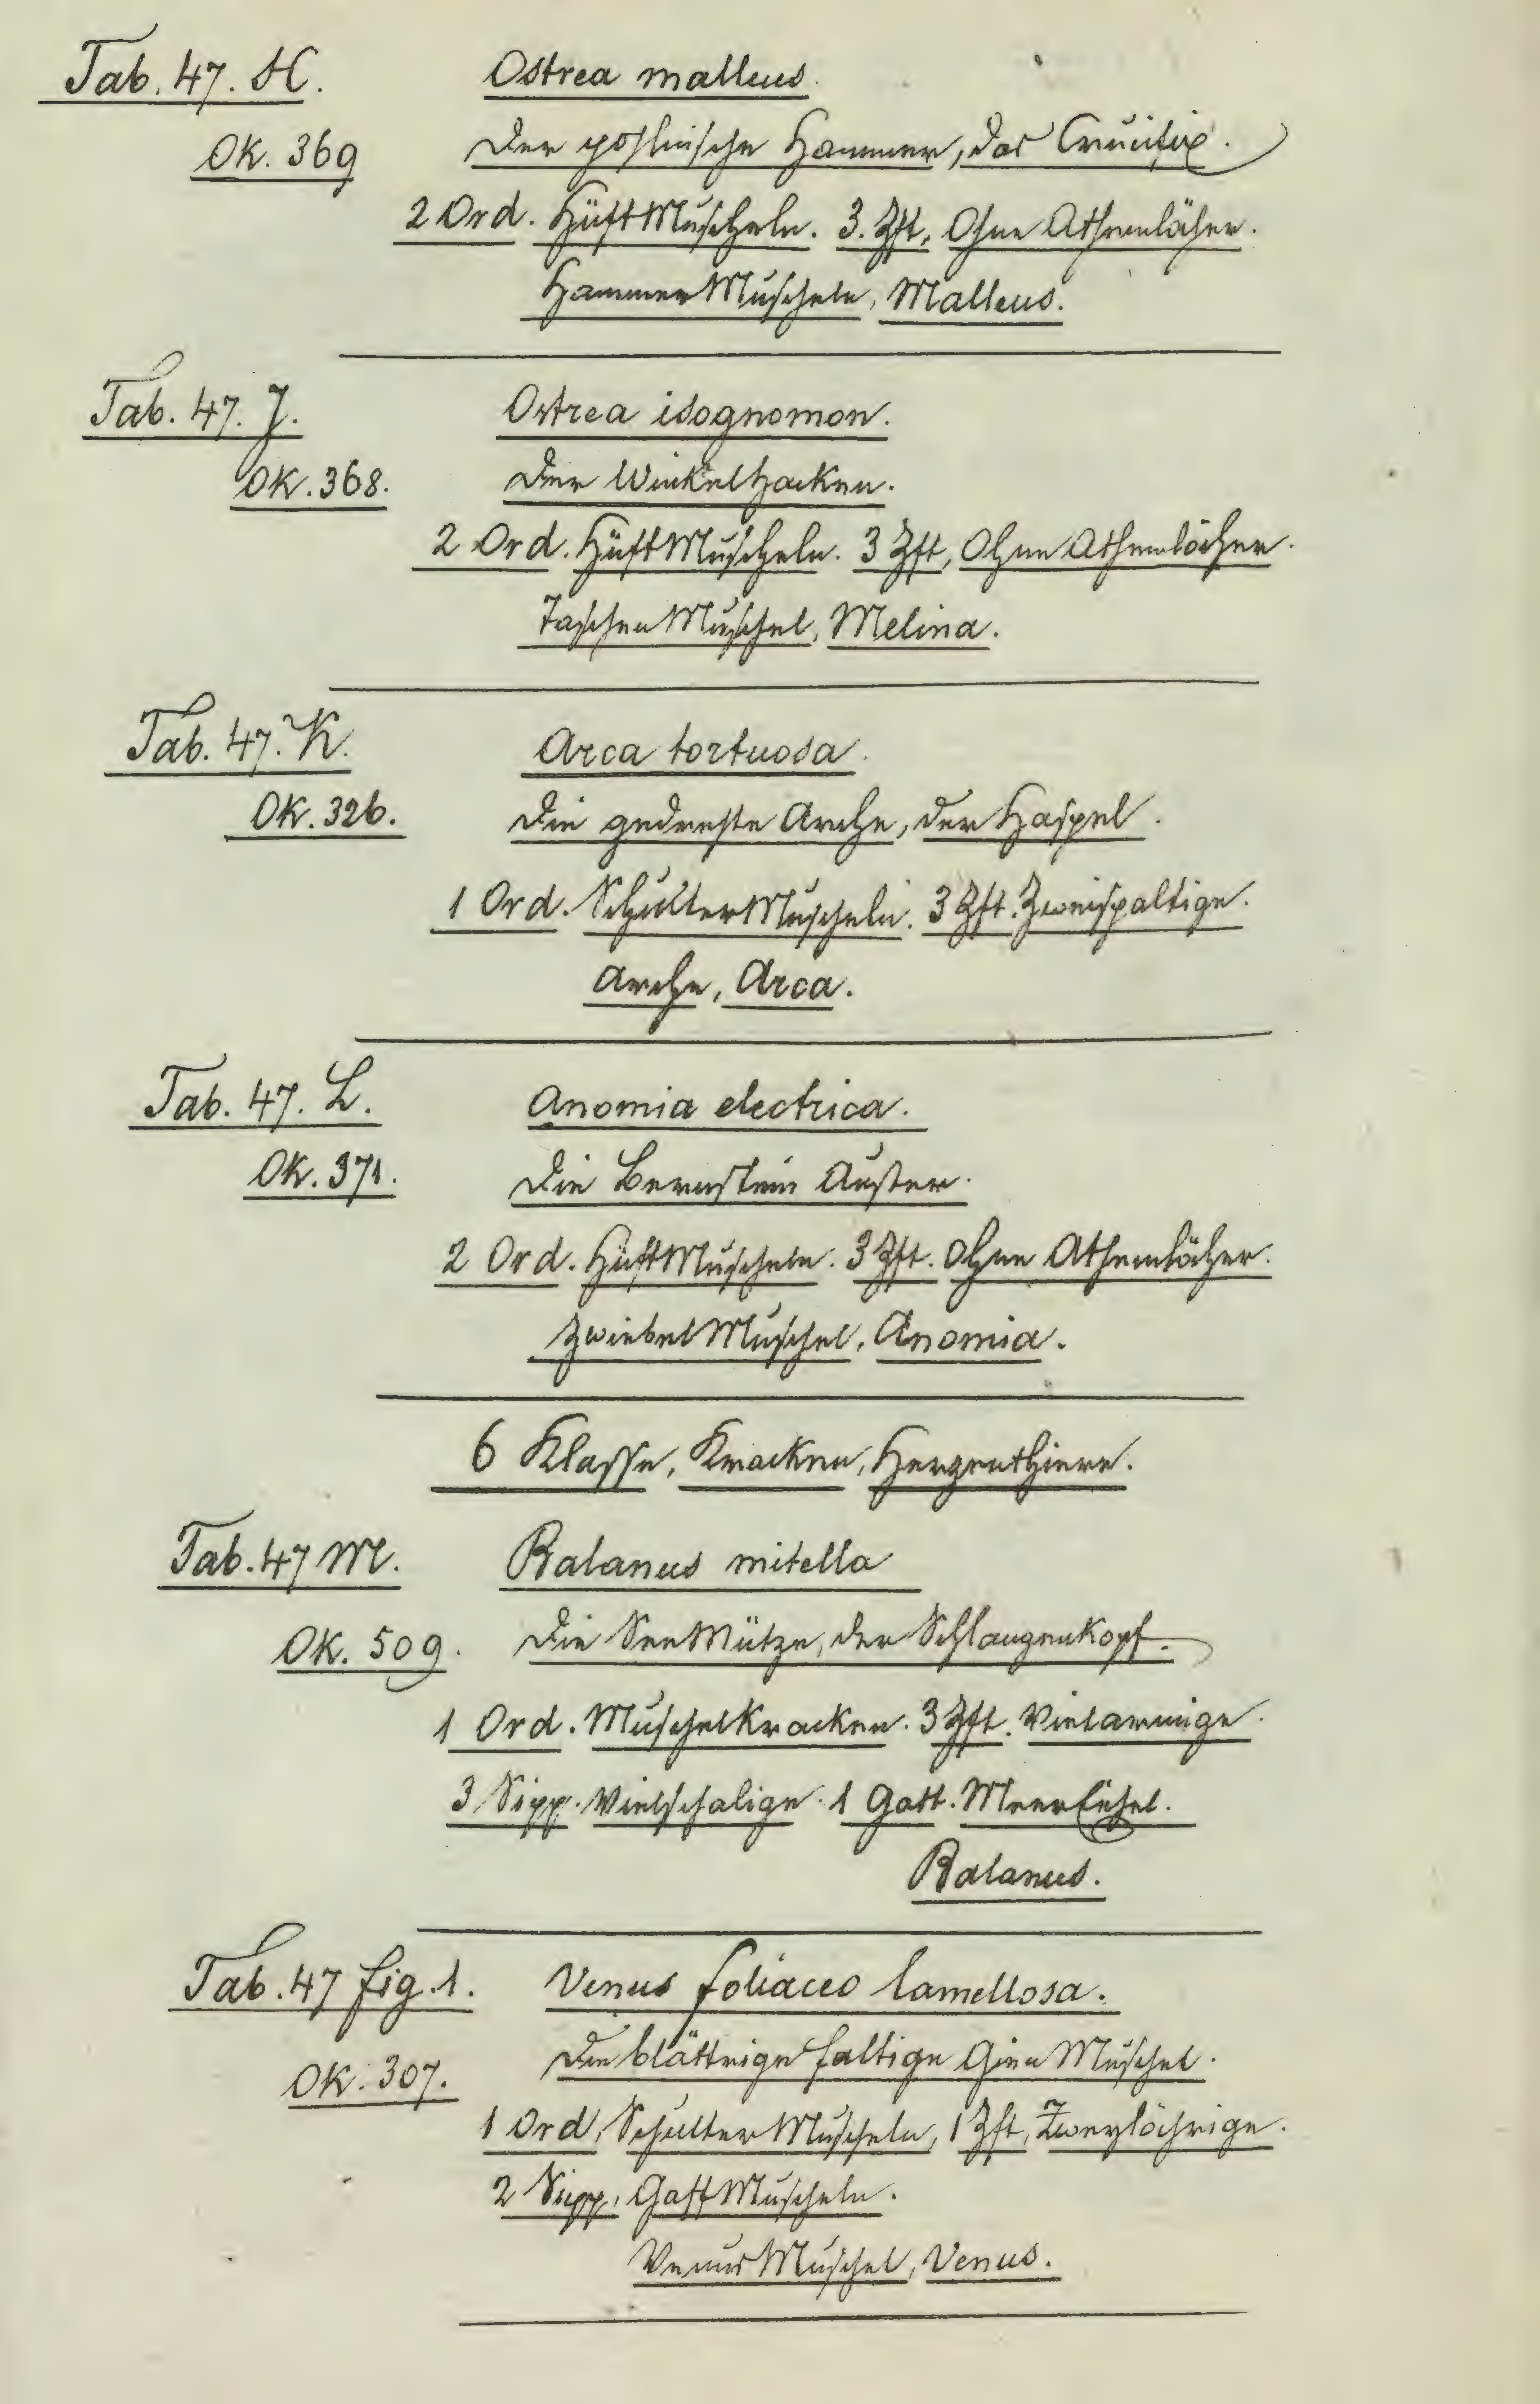 Tab. 47. H. Ostrea malleus.
Ok. 369 Der pohlnische Hammer, das Crucifix.
2 Ord. HüftMuscheln. 3. Zft, Ohne Athemlöcher.
HammerMuscheln, Malleus.
Tab. 47. J. Ostrea isognomon.
Ok. 368. Der Winkelhacken.
2 Ord. HüftMuscheln. 3 Zft, Ohne Athemlöcher.
TaschenMuschel, Melina.
Tab. 47. K. Arca tortuosa.
Ok. 326. Die gedrehte Arche, der Haspel.
1 Ord. SchulterMuscheln. 3 Zft. Zweispaltige.
Arche, Arca.
Tab. 47. L. Anomia electrica.
Ok. 371. Die Bernstein Auster.
2 Ord. HüftMuscheln. 3 Zft. Ohne Athemlöcher.
ZwiebelMuschel, Anomia.
6 Klasse, Kracken, Herzenthiere.
Tab. 47 M. Balanus mitella
Ok. 509. Die SeeMütze, der Schlangenkopf.
1 Ord. MuschelKracken. 3 Zft. Vielarmige.
3 Sipp. Vielschalige. 1 Gatt. MeerEichel.
Balanus.
Tab. 47 fig. 1. Venus foliaceo lamellosa.
Ok. 307. Die blättrige faltige GienMuschel.
1 Ord, SchulterMuscheln, 1 Zft, Zweylöchrige.
2 Sipp, GaffMuscheln.
VenusMuschel, Venus.